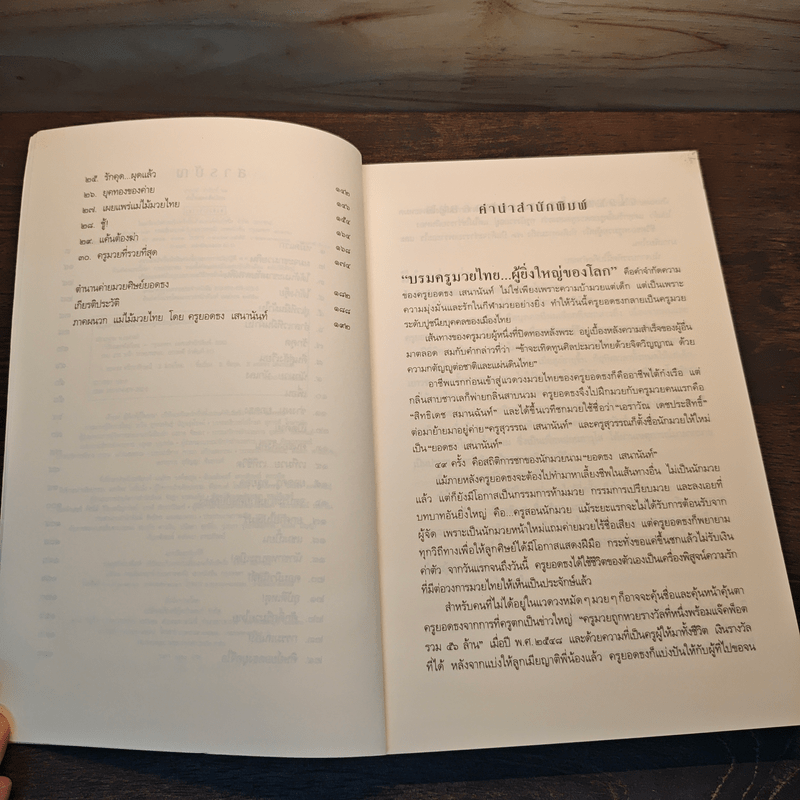 ๒๕. รักดุด...ผุดแล้ว ๑๔๒
๒๖. ยุคทองของค่าย ๑๔๖
๒๗. เผยแพร่แม่ไม้มวยไทย ๑๕๔
๒๘. ชู้! ๑๖๐
๒๙. แค้นต้องฆ่า ๑๖๘
๓๐. ครูมวยที่รวยที่สุด ๑๗๔
ตำนานค่ายมวยศิษย์ยอดธง ๑๘๒
เกียรติประวัติ ๑๘๘
ภาคผนวก แม่ไม้มวยไทย โดย ครูยอดธง เสนานันท์ ๑๙๒
คำนำสำนักพิมพ์
“บรมครูมวยไทย...ผู้ยิ่งใหญ่ของโลก” คือคำจำกัดความ
ของครูยอดธง เสนานันท์ ไม่ใช่เพียงเพราะความบ้ามวยแต่เด็ก แต่เป็นเพราะ
ความมุ่งมั่นและรักในกีฬามวยอย่างยิ่ง ทำให้วันนี้ครูยอดธงกลายเป็นครูมวย
ระดับปูชนียบุคคลของเมืองไทย
เส้นทางของครูมวยผู้หนึ่งที่ปิดทองหลังพระ อยู่เบื้องหลังความสำเร็จของผู้อื่น
มาตลอด สมกับคำกล่าวที่ว่า “ข้าจะเทิดทูนศิลปะมวยไทยด้วยจิตวิญญาณ ด้วย
ความกตัญญูต่อชาติและแผ่นดินไทย”
อาชีพแรกก่อนเข้าสู่แวดวงมวยไทยของครูยอดธงก็คืออาชีพใต้ก๋งเรือ แต่
กลิ่นสาบชาวเลก็พ่ายกลิ่นสาบนวม ครูยอดธงจึงไปฝึกมวยกับครูมวยคนแรกคือ
“สิทธิเดช สมานฉันท์” และได้ขึ้นเวทีชกมวยใช้ชื่อว่า “เอราวัณ เดชประสิทธิ์”
ต่อมาย้ายมาอยู่ค่าย “ครูสุวรรณ เสนานันท์” และครูสุวรรณก็ตั้งชื่อนักมวยให้ใหม่
เป็น “ยอดธง เสนานันท์”
๔๙ ครั้ง คือสถิติการชกของนักมวยนาม “ยอดธง เสนานันท์”
แม้ภายหลังครูยอดธงจะต้องไปทำมาหาเลี้ยงชีพในเส้นทางอื่น ไม่เป็นนักมวย
แล้ว แต่ก็ยังมีโอกาสเป็นกรรมการห้ามมวย กรรมการเปรียบมวย และลงเอยที่
บทบาทอันยิ่งใหญ่ คือ...ครูสอนนักมวย แม้ระยะแรกจะไม่ได้รับการต้อนรับจาก
ผู้จัด เพราะเป็นนักมวยหน้าใหม่แถมค่ายมวยไร้ชื่อเสียง แต่ครูยอดธงก็พยายาม
ทุกวิถีทางเพื่อให้ลูกศิษย์ได้มีโอกาสแสดงฝีมือ กระทั่งขอแค่ขึ้นชกแล้วไม่รับเงิน
ค่าตัว จากวันแรกจนถึงวันนี้ ครูยอดธงได้ใช้ชีวิตของตัวเองเป็นเครื่องพิสูจน์ความรัก
ที่มีต่อวงการมวยไทยให้เห็นเป็นประจักษ์แล้ว
สำหรับคนที่ไม่ได้อยู่ในแวดวงหมัด ๆ มวย ๆ ก็อาจจะคุ้นชื่อและคุ้นหน้าคุ้นตา
ครูยอดธงจากการที่ครูตกเป็นข่าวใหญ่ “ครูมวยถูกหวยรางวัลที่หนึ่งพร้อมแจ๊คพ็อต
รวม ๕๖ ล้าน” เมื่อปี พ.ศ. ๒๕๔๘ และด้วยความที่เป็นครูผู้ให้มาทั้งชีวิต เงินรางวัล
ที่ได้ หลังจากแบ่งให้ลูกเมียญาติพี่น้องแล้ว ครูยอดธงก็แบ่งปันให้กับผู้ที่ไปขอจน